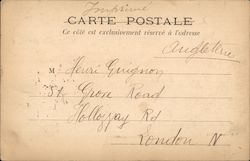 Imprimé
CARTE POSTALE
Ce côté est exclusivement réservé à l'adresse
Angleterre
M Henri Guignon
51 Grove Road
Holloway Rd
London N